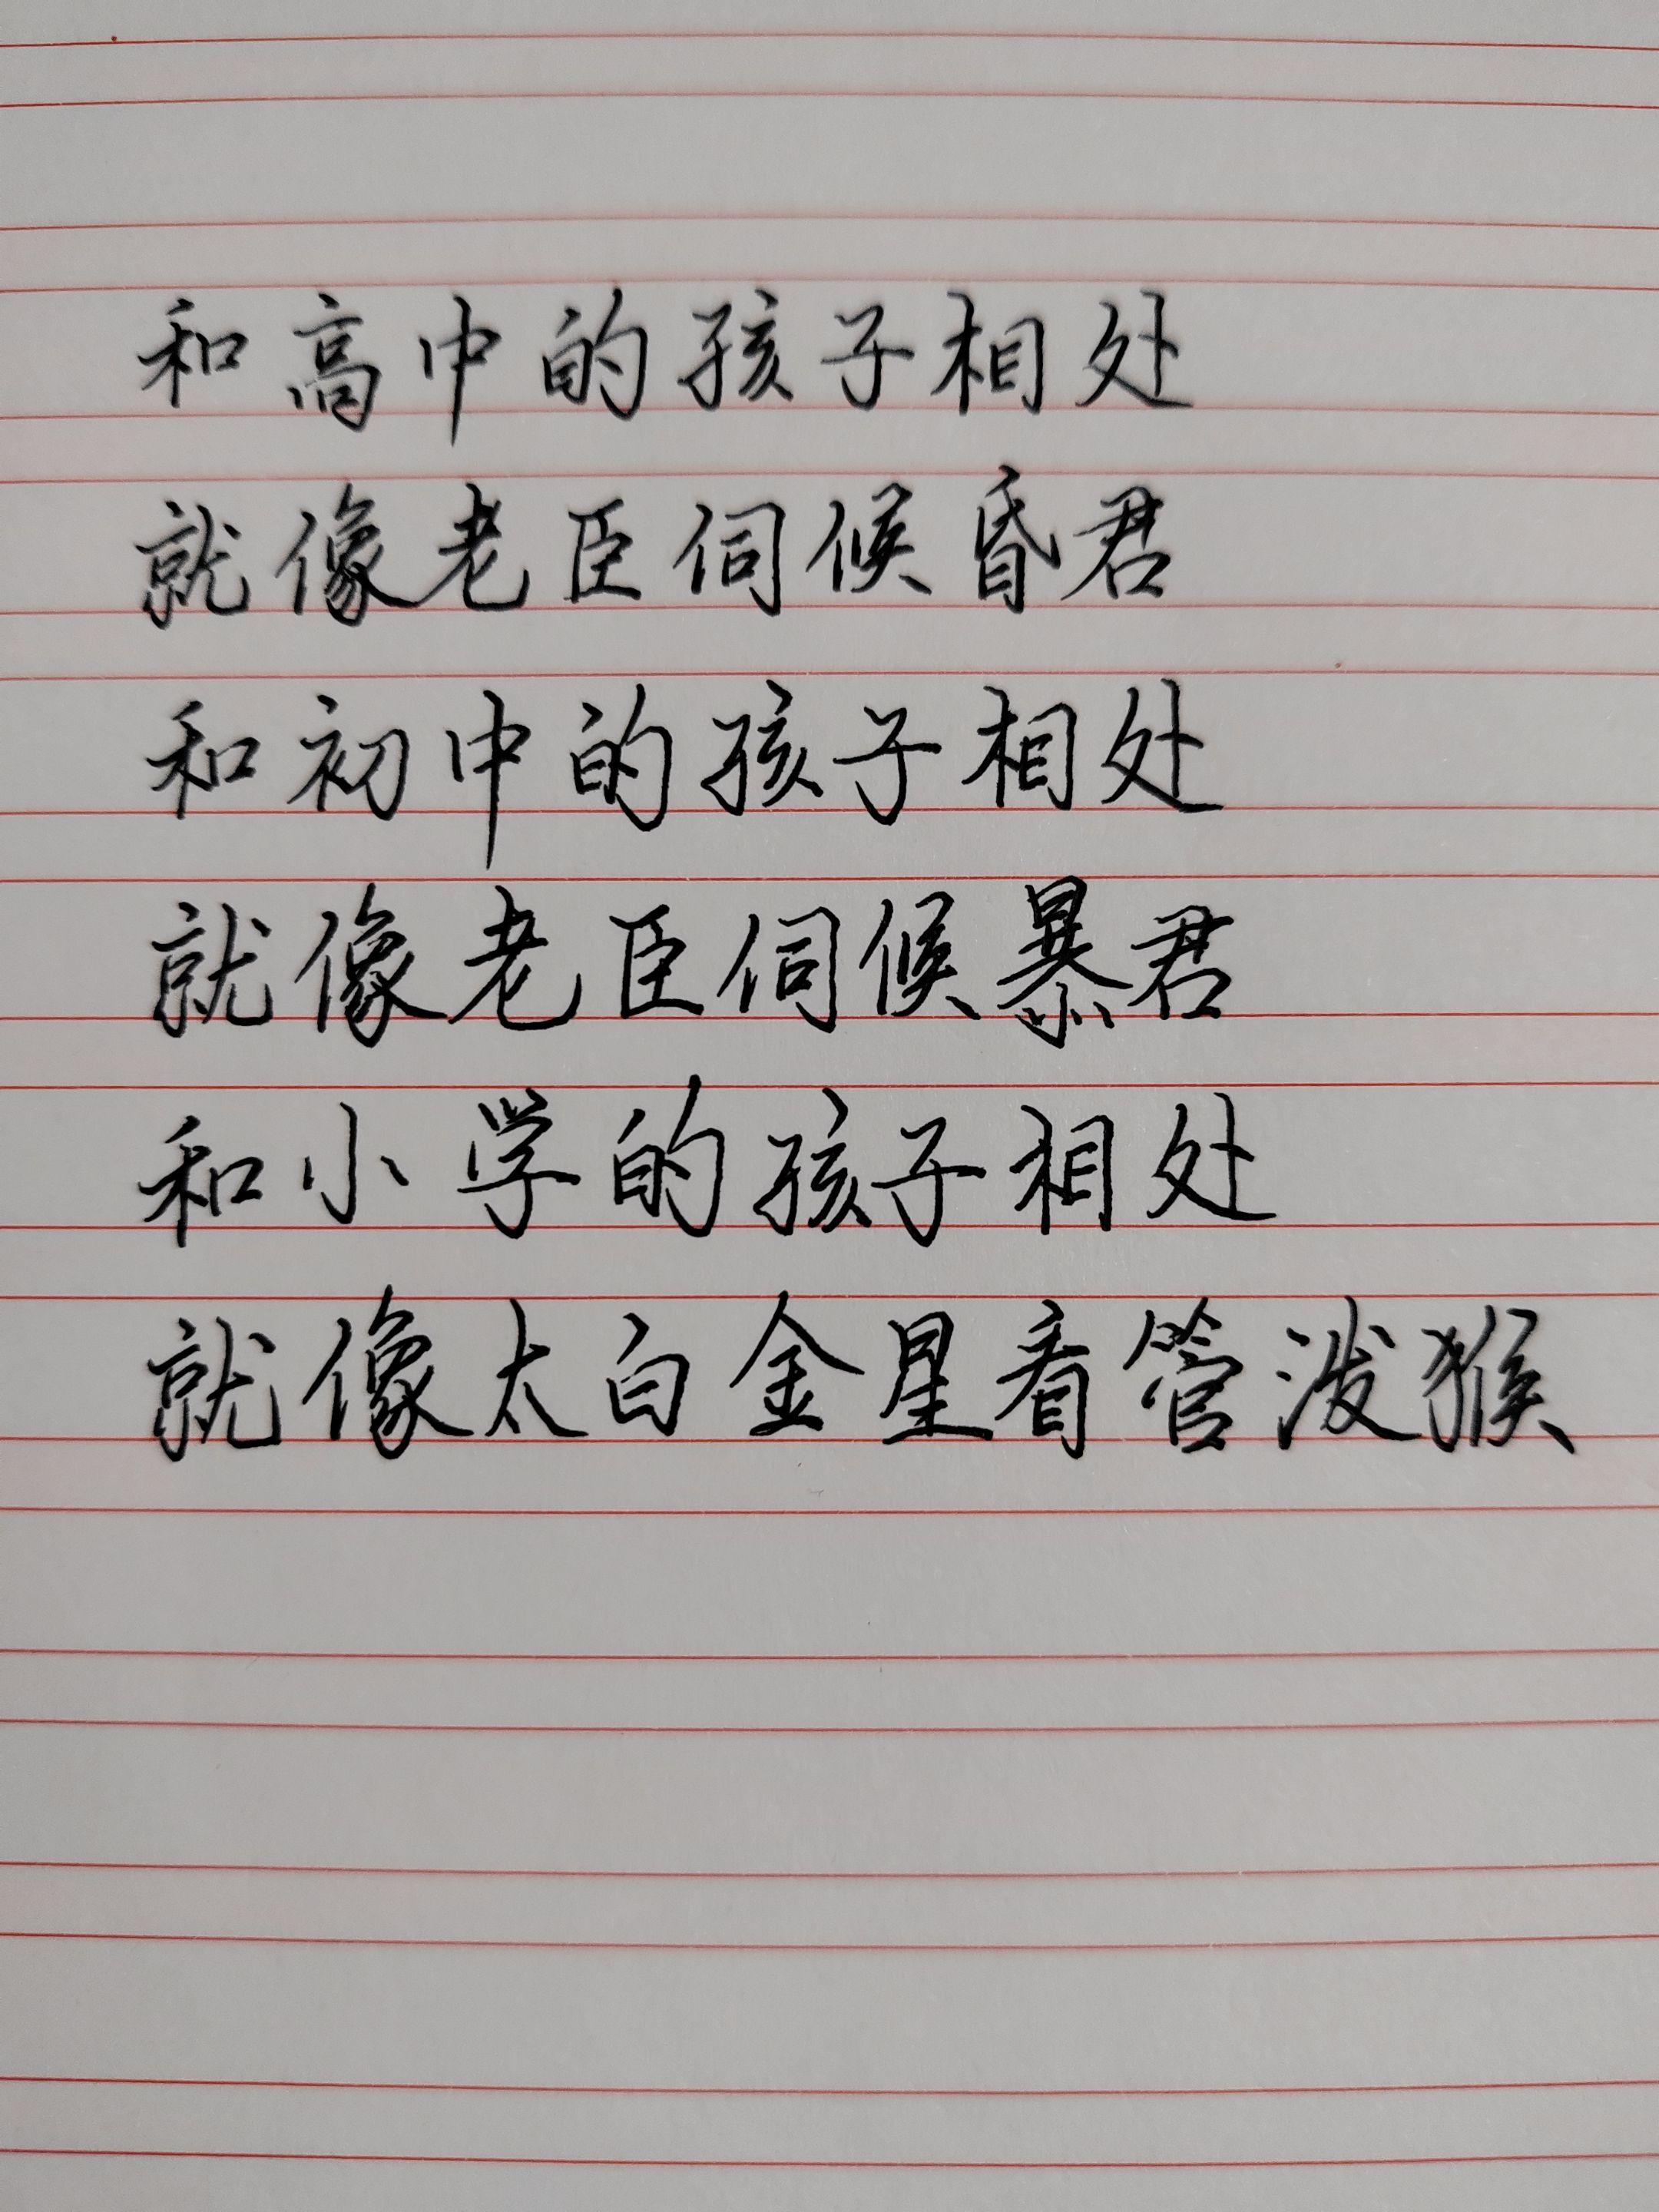 和高中的孩子相处
就像老臣伺候昏君
和初中的孩子相处
就像老臣伺候暴君
和小学的孩子相处
就像太白金星看管泼猴